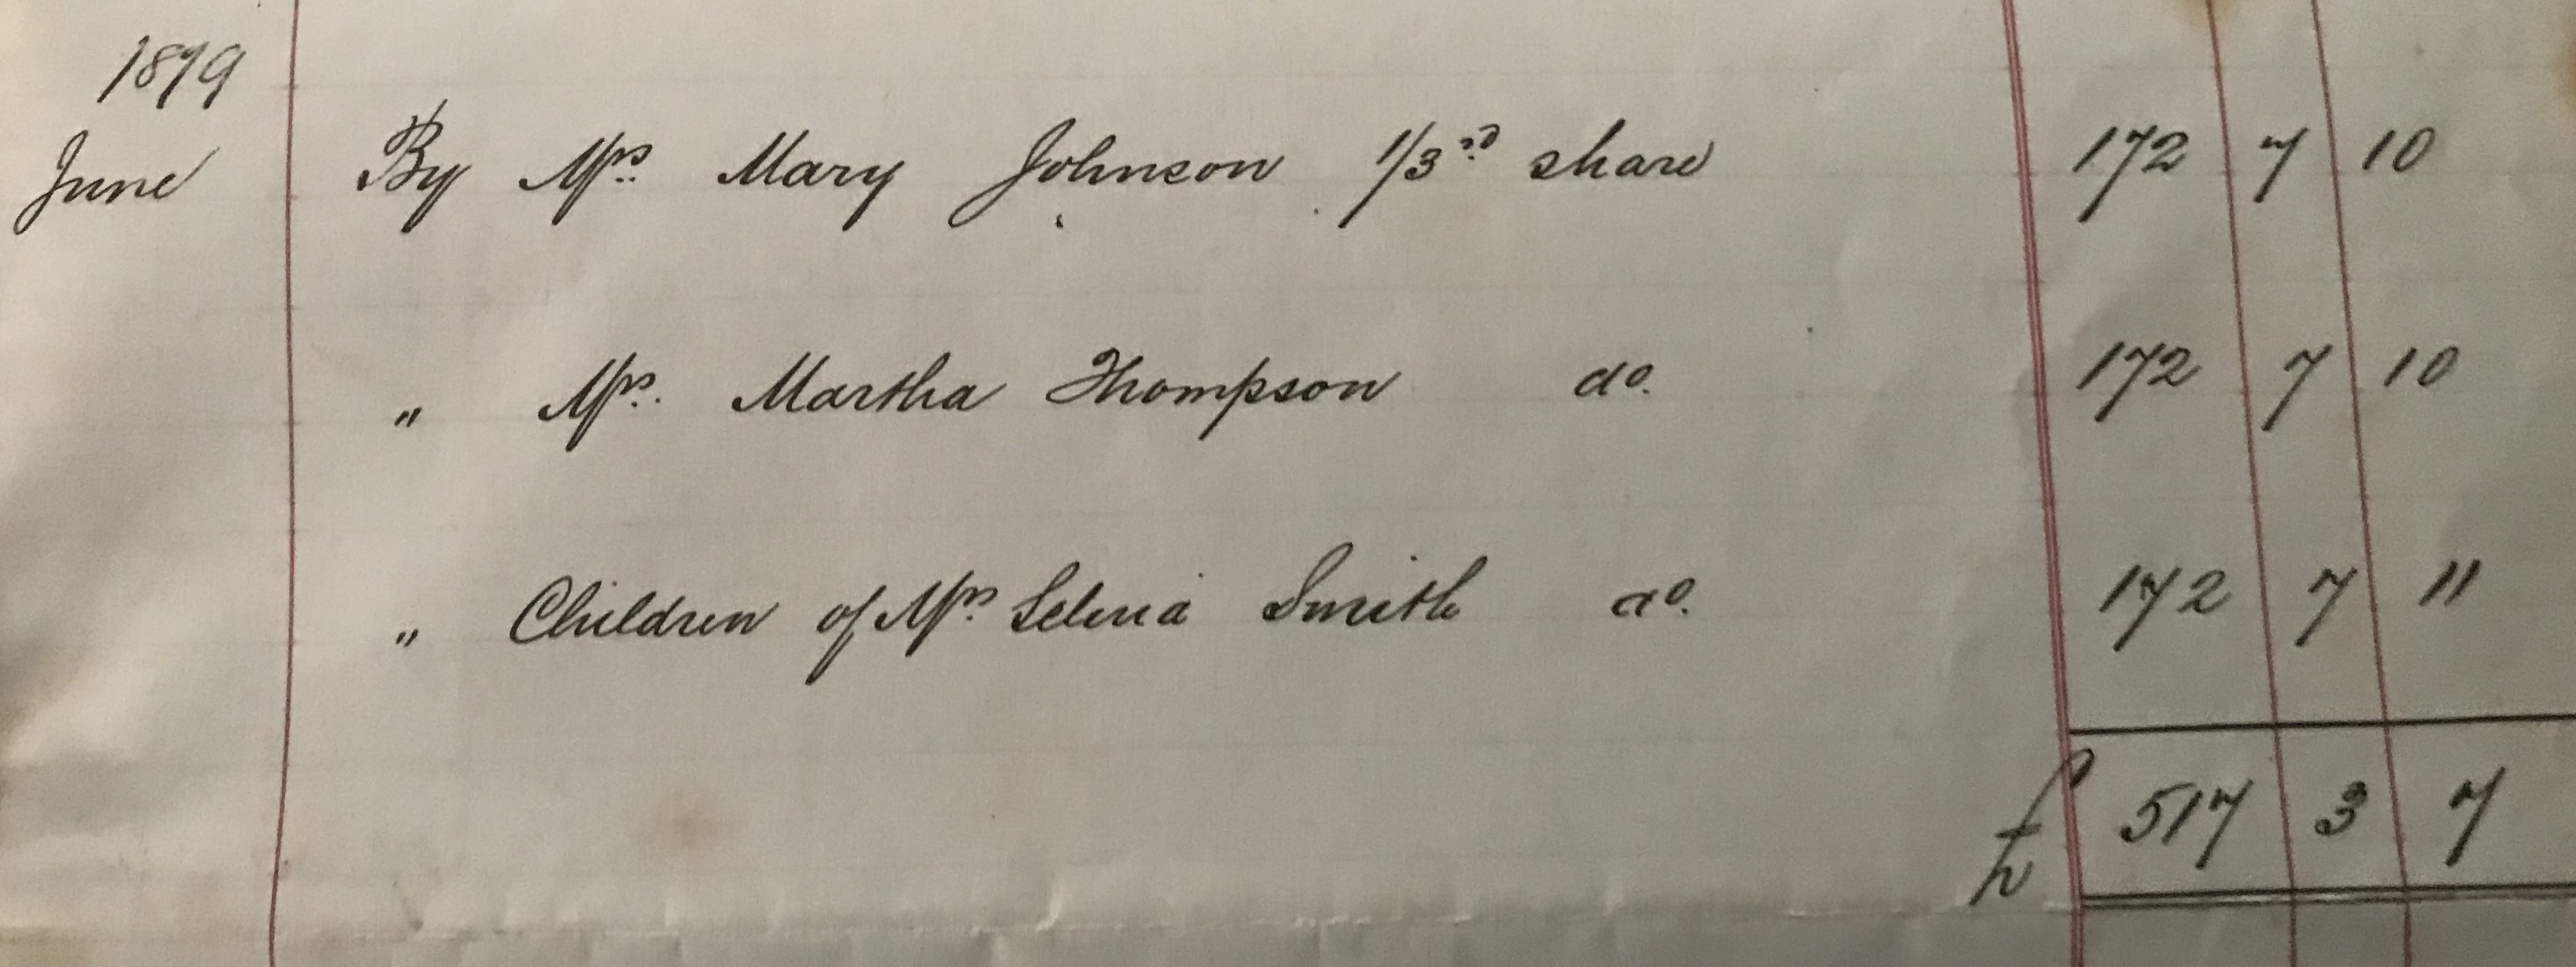 1879
June By Mrs. Mary Johnson 1/3rd share 172 7 10
" Mrs. Martha Thompson do. 172 7 10
" Children of Mrs. Selena Smith do. 172 7 11
£ 517 3 7